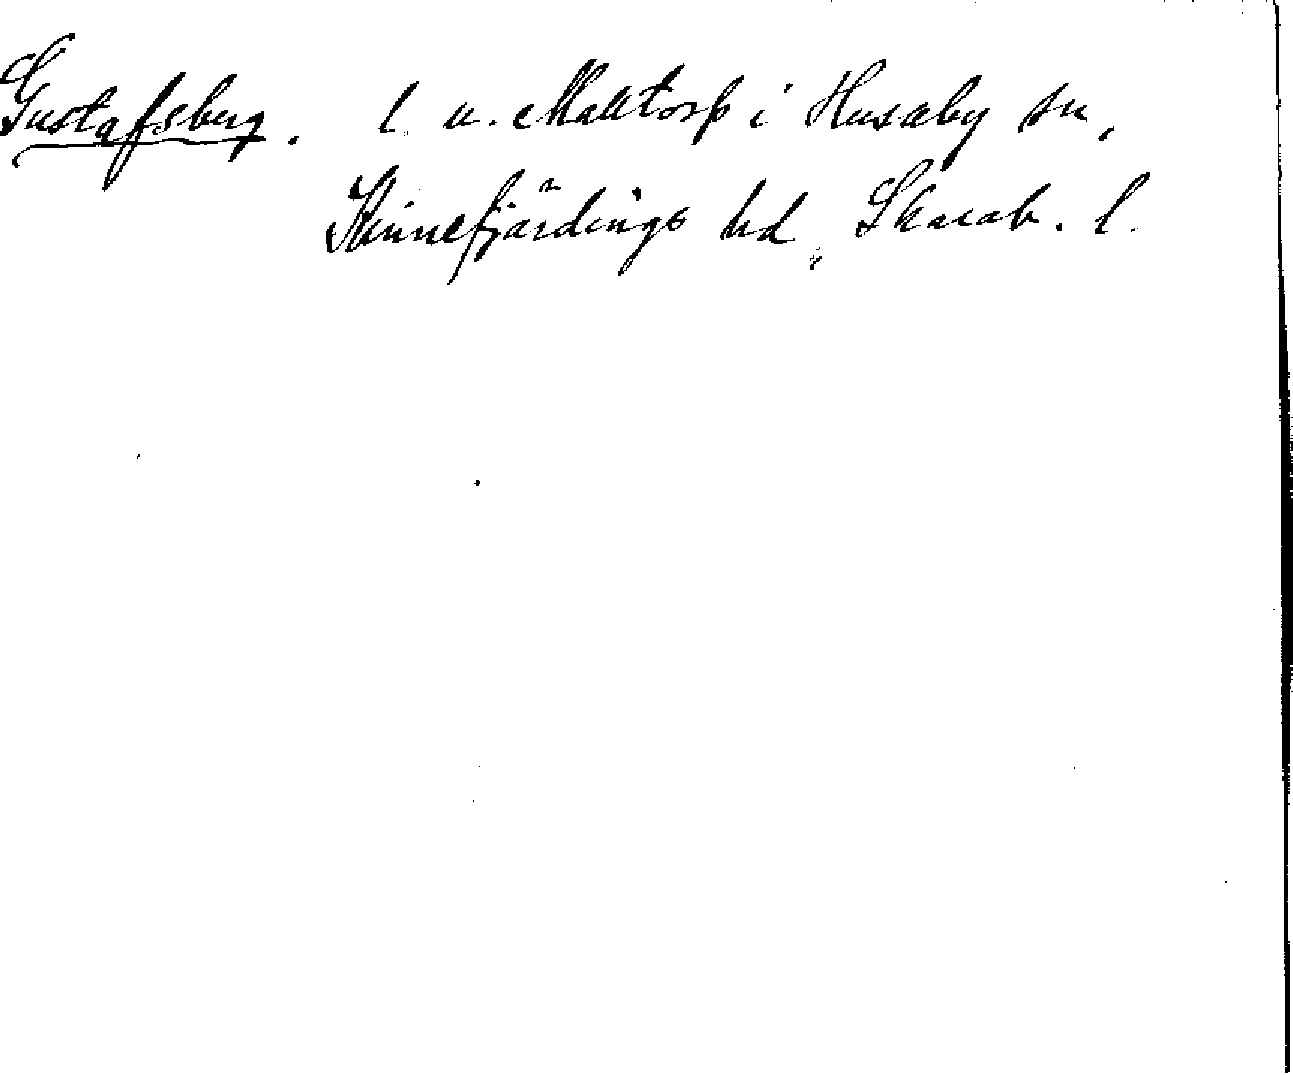 Gustafsberg. l. u. Maltorp i Husaby sn,
Kinnefjärdings hd, Skarab. l.